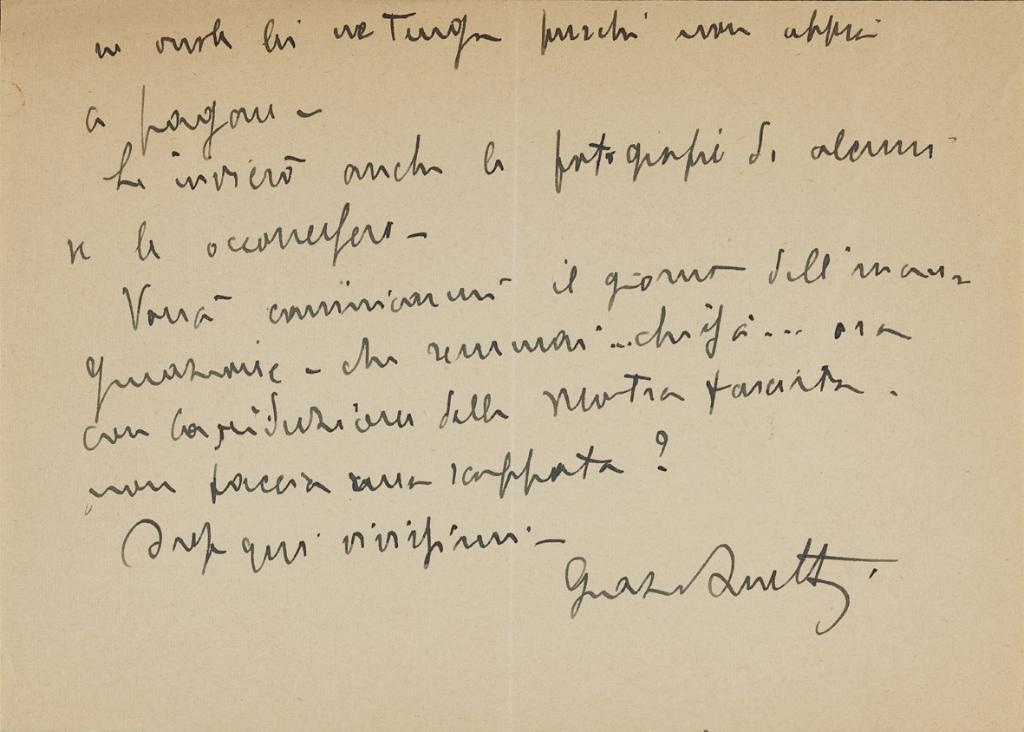 in onde lei ne tenga purchè non abbia
a pagare –
Le invierò anche le fotografie di alcuni
se le occorressero –
Vorrà comunicarmi il giorno dell'inau-
gurazione – che semmai... chissà... ora
con la riduzione della Mostra fascista.
non faccia una scappata?
ossequi vivissimi –